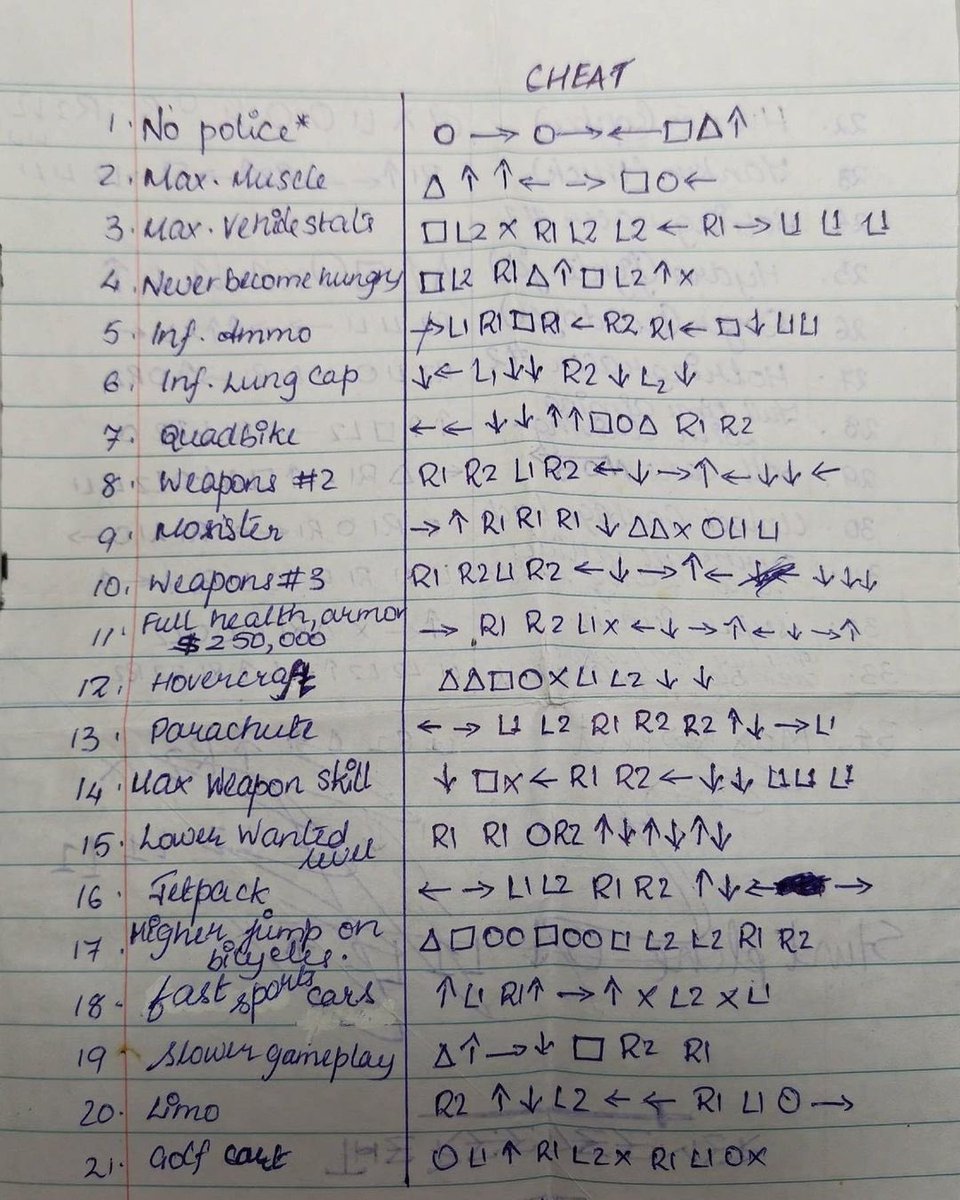 CHEAT
1. No police* ○ → ○ → ← □ △ ↑
2. Max. Muscle △ ↑ ↑ ← → □ ○ ←
3. Max. Vehicle stats □ L2 X R1 L2 L2 ← R1 → L1 L1 L1
4. Never become hungry □ L2 R1 △ ↑ □ L2 ↑ X
5. Inf. Ammo → L1 R1 □ R1 ← R2 R1 ← □ ↓ L1 L1
6. Inf. Lung cap ↓ ← L1 ↓ ↓ R2 ↓ L2 ↓
7. Quadbike ← ← ↓ ↓ ↑ ↑ □ ○ △ R1 R2
8. Weapons #2 R1 R2 L1 R2 ← ↓ → ↑ ← ↓ ↓ ←
9. Monster → ↑ R1 R1 R1 ↓ △ △ X ○ L1 L1
10. Weapons #3 R1 R2 L1 R2 ← ↓ → ↑ ← ↓ ↓ ↓
11. Full health, armor
$250,000 → R1 R2 L1 X ← ↓ → ↑ ← ↓ → ↑
12. Hovercraft △ △ □ ○ X L1 L2 ↓ ↓
13. Parachute ← → L1 L2 R1 R2 R2 ↑ ↓ → L1
14. Max Weapon Skill ↓ □ X ← R1 R2 ← ↓ ↓ L1 L1 L1
15. Lower Wanted R1 R1 ○ R2 ↑ ↓ ↑ ↓ ↑ ↓
level
16. Jetpack ← → L1 L2 R1 R2 ↑ ↓ ← →
17. Higher jump on △ □ ○ ○ □ ○ ○ □ L2 L2 R1 R2
bicycles.
18. fast sports cars ↑ L1 R1 ↑ → ↑ X L2 X L1
19. Slower gameplay △ ↑ → ↓ □ R2 R1
20. Limo R2 ↑ ↓ L2 ← ← R1 L1 ○ →
21. Golf cart ○ L1 ↑ R1 L2 X R1 L1 ○ X